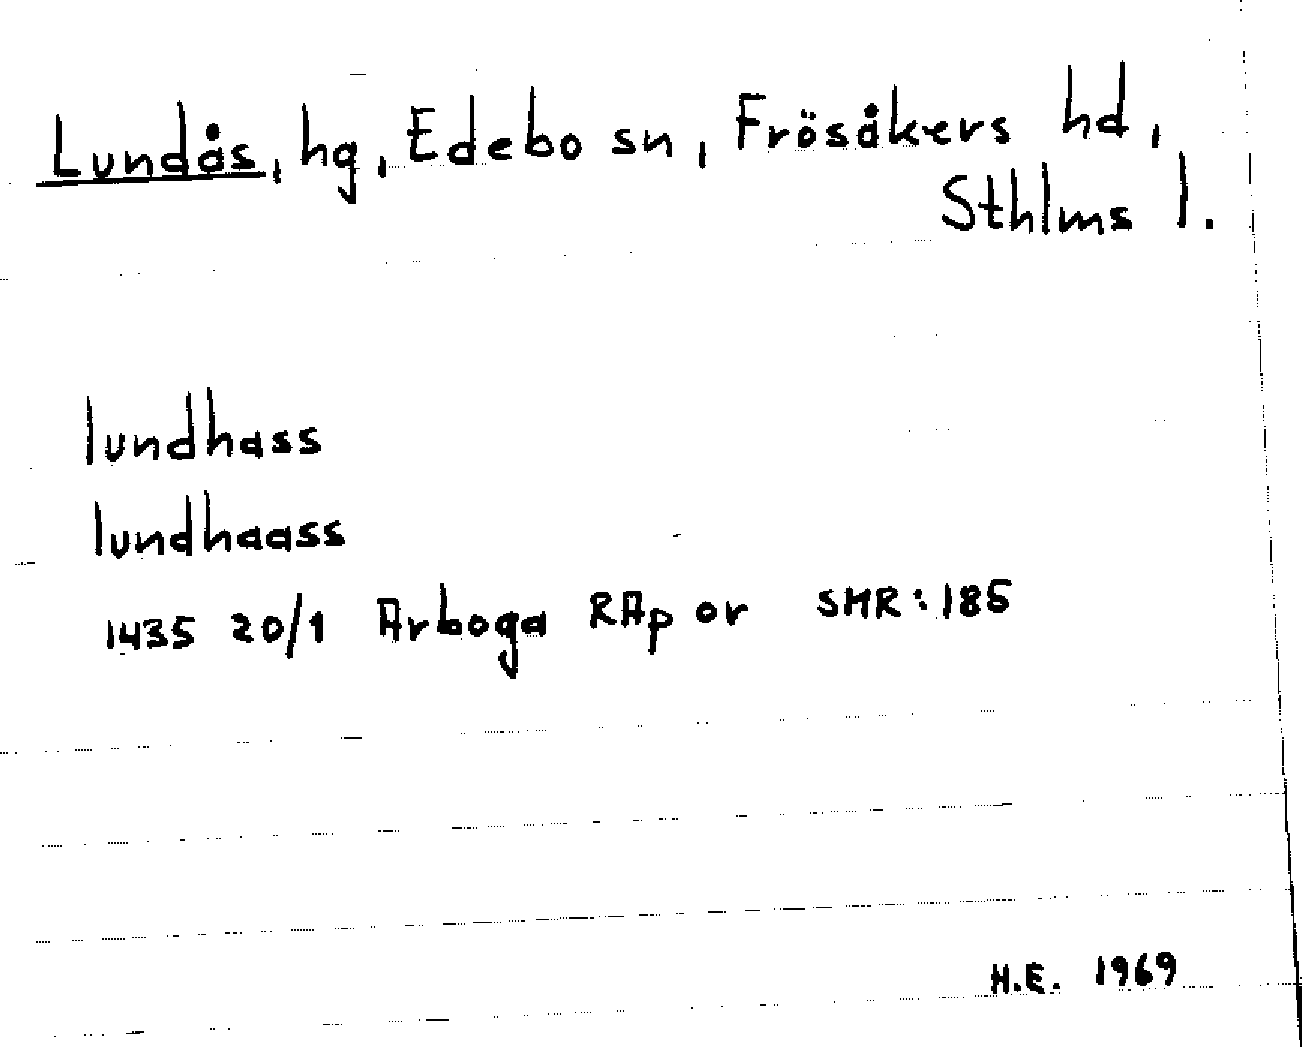 Lundås, hg, Edebo sn, Frösåkers hd,
Sthlms l.
lundhass
lundhaass
1435 20/1 Arboga RAp or SMR:185
H.E. 1969